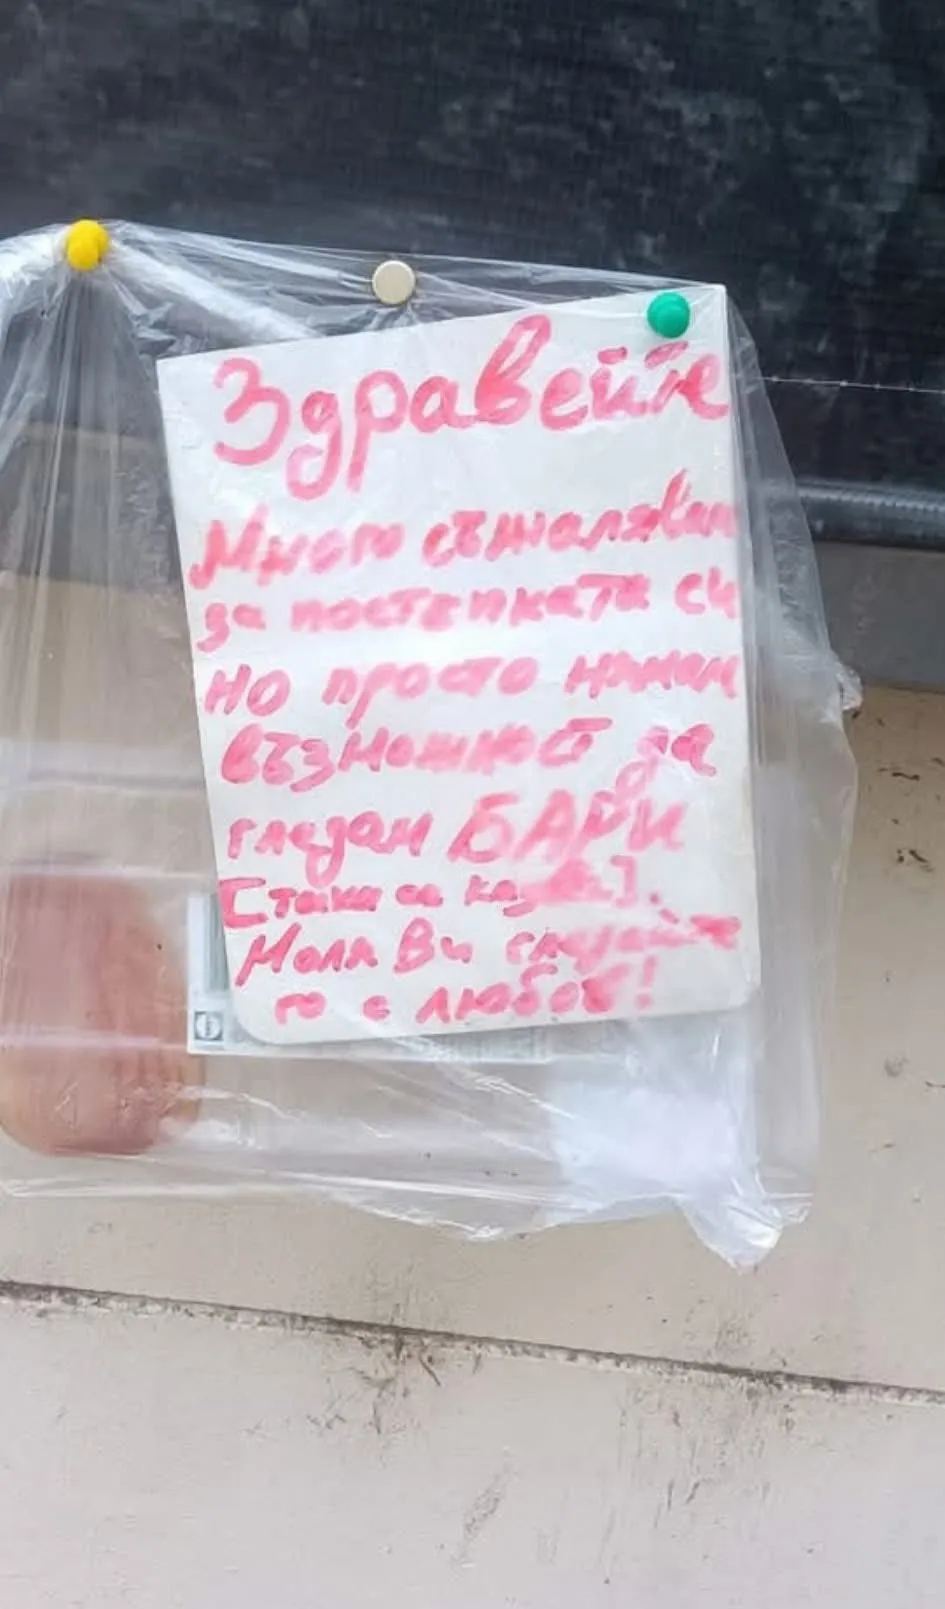 Здравейте
Много съжалявам
за постъпката си
но просто нямам
възможност да
гледам БАРИ
[така се казва].
Моля Ви гледайте
го с любов!